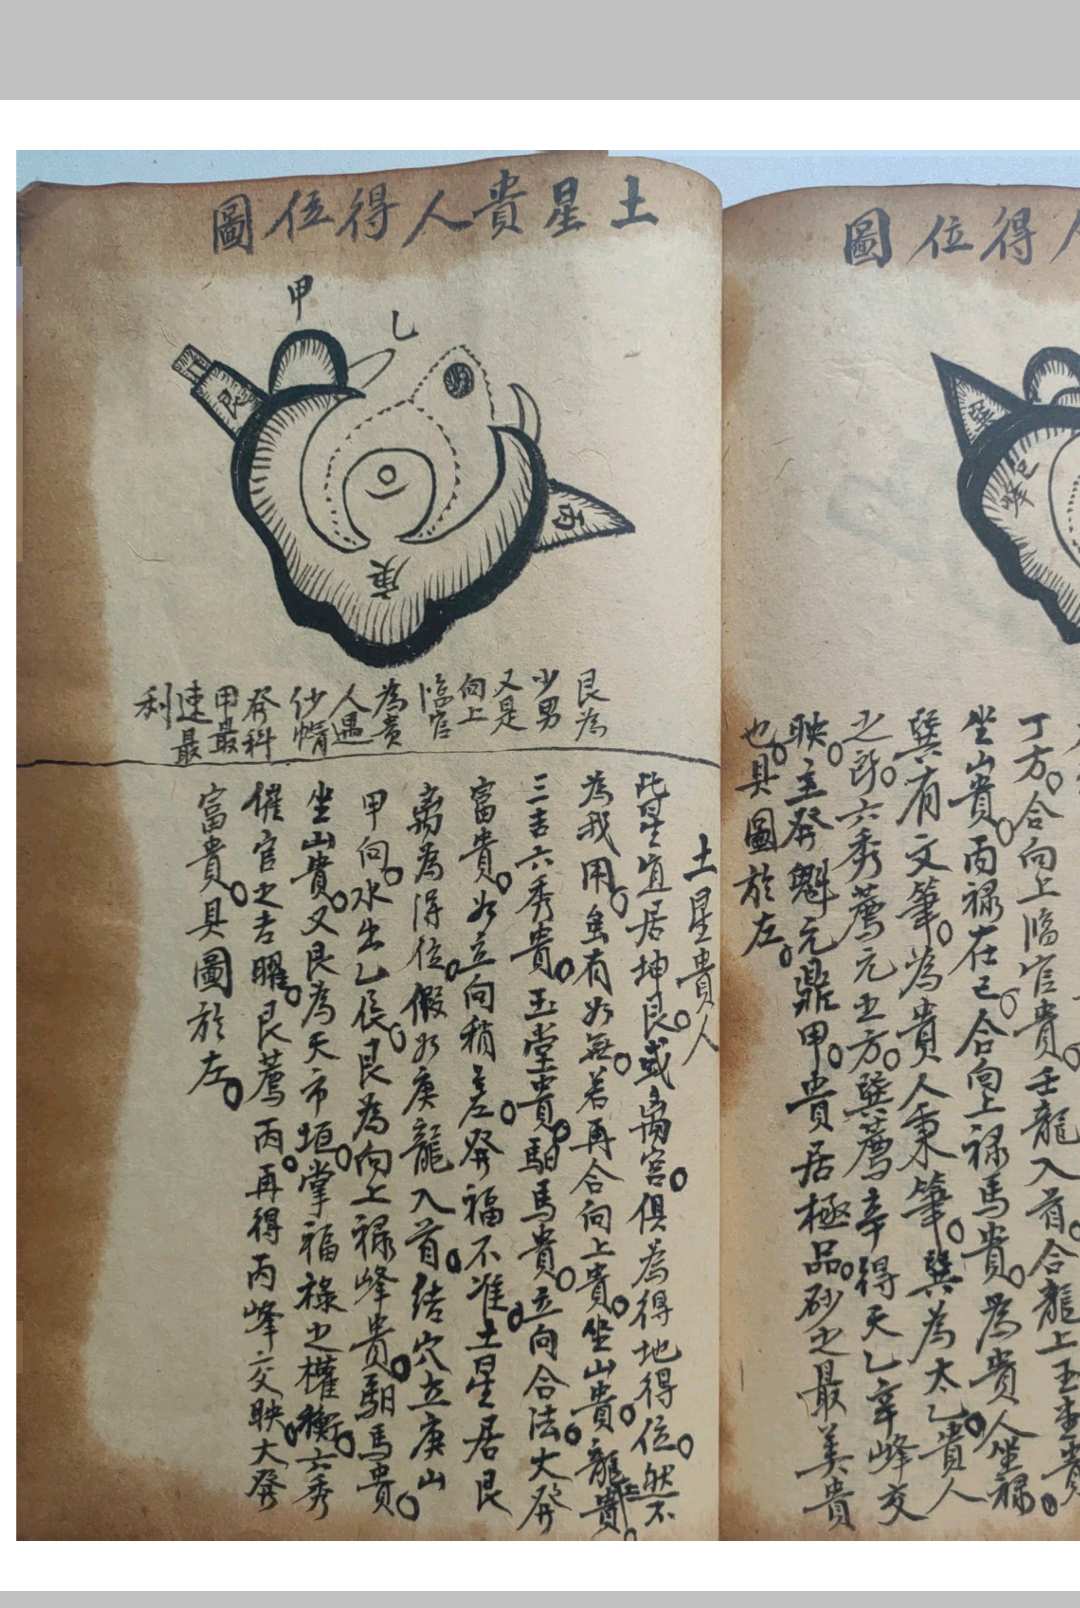 人得位圖
巽
巳峰
丁方。合向上臨官貴。壬龍入首。合龍上玉堂貴
坐山貴。丙祿在巳。合向上祿馬貴。為貴人坐祿。
巽有文筆。為貴人秉筆。巽為太乙。貴人
之所。六秀薦元之方。巽薦辛得天乙辛峰交
映。主發魁元鼎甲。貴居極品。砂之最美貴
也。具圖於左。
土星貴人得位圖
甲
乙
艮
丙
庚
艮為
少男
又是
向上
臨官
為貴
人遇
砂
發科
甲最
速最
利
土星貴人
此星宜居坤艮。或离宮。俱為得地得位。然不
為我用。虽有如無。若再合向上貴。坐山貴。龍貴。
三吉六秀貴。玉堂貴。馹馬貴。立向合法。大發
富貴。如立向稍差。發福不准。土星居艮
离為得位。假如庚龍入首。结穴立庚山
甲向。水出乙辰。艮為向上祿峰貴。馹馬貴。
坐山貴。又艮為天市垣。掌福祿之權衡。六秀
催官之吉曜。艮薦丙。再得丙峰交映。大發
富貴。具圖於左。